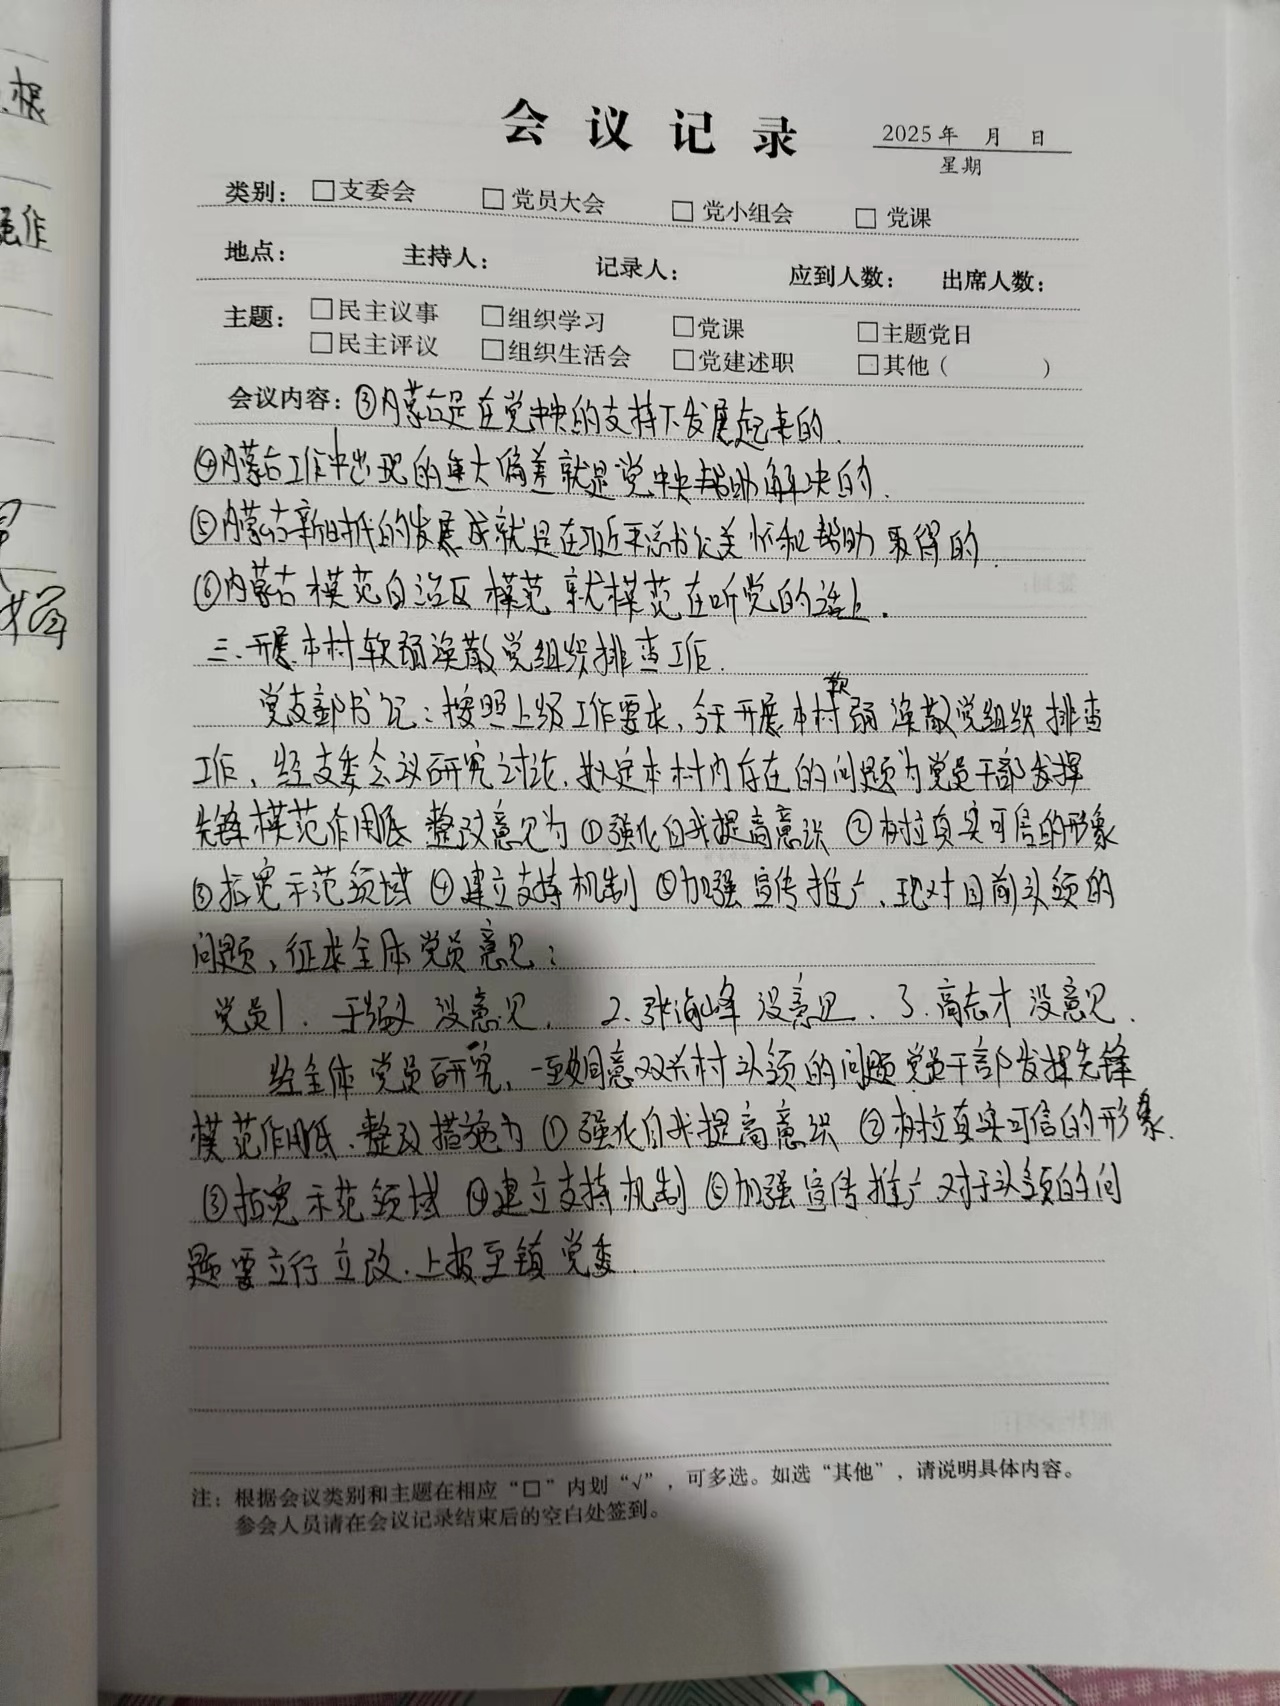 根
作
会议记录
2025年 月 日
星期
类别：□支委会 □党员大会 □党小组会 □党课
地点： 主持人： 记录人： 应到人数： 出席人数：
主题：□民主议事 □组织学习 □党课 □主题党日
□民主评议 □组织生活会 □党建述职 □其他（ ）
会议内容：③内蒙古是在党中央的支持下发展起来的.
④内蒙古工作中出现的重大偏差就是党中央帮助解决的.
⑤内蒙古新时代的发展成就是在习近平总书记关怀和帮助取得的.
⑥内蒙古模范自治区模范就模范在听党的话上.
三.开展本村软弱涣散党组织排查工作.
党支部书记：按照上级工作要求，今天开展本村软弱涣散党组织排查
工作，经支委会议研究讨论，拟定本村内存在的问题为党员干部发挥
先锋模范作用低 整改意见为①强化自我提高意识 ②树立真实可信的形象
③拓宽示范领域 ④建立支持机制 ⑤加强宣传推广、现对目前头领的
问题，征求全体党员意见：
党员1. 没意见. 2.张海峰 没意见. 3.高志才 没意见.
经全体党员研究，一致同意双兴村头领的问题党员干部发挥先锋
模范作用低.整改措施为①强化自我提高意识 ②树立真实可信的形象.
③拓宽示范领域 ④建立支持机制 ⑤加强宣传推广 对于头领的问
题要立行立改.上报至镇党委.
注：根据会议类别和主题在相应“□”内划“√”，可多选。如选“其他”，请说明具体内容。
参会人员请在会议记录结束后的空白处签到。